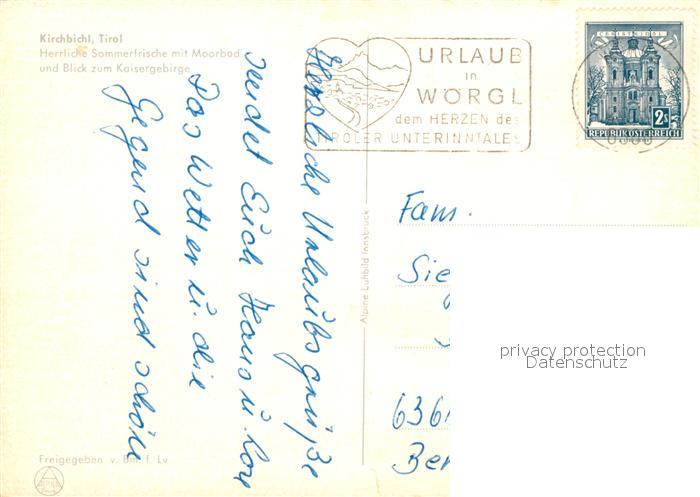 Kirchbichl, Tirol
Herrliche Sommerfrische mit Moorbad
und Blick zum Kaisergebirge
URLAUB
in
WÖRGL
dem HERZEN des
TIROLER UNTERINNTALES
CHRISTKINDL
2S
REPUBLIK ÖSTERREICH
Herzliche Urlaubsgrüße
sendet Euch Hans u. Lore
Das Wetter u. die
Gegend sind schön
Alpine Luftbild Innsbruck
Fam.
Sie
636
Ber
privacy protection
Datenschutz
Freigegeben v. BM. f. Lv.